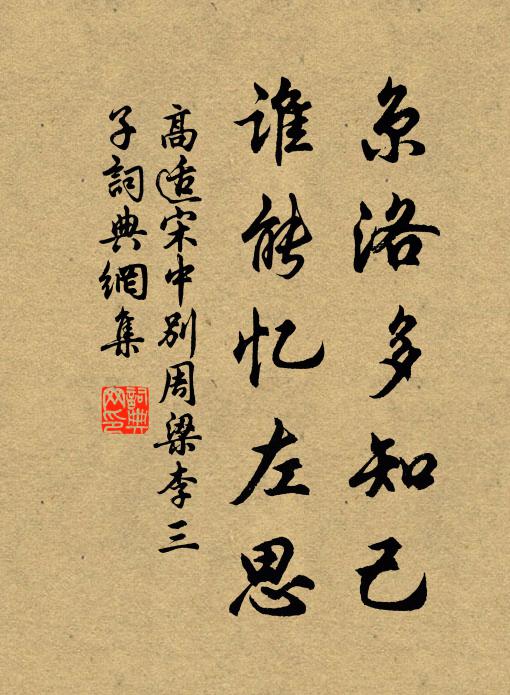 京洛多知己
谁能忆左思
高适宋中别周梁李三
子詞典網集
詞典
网印